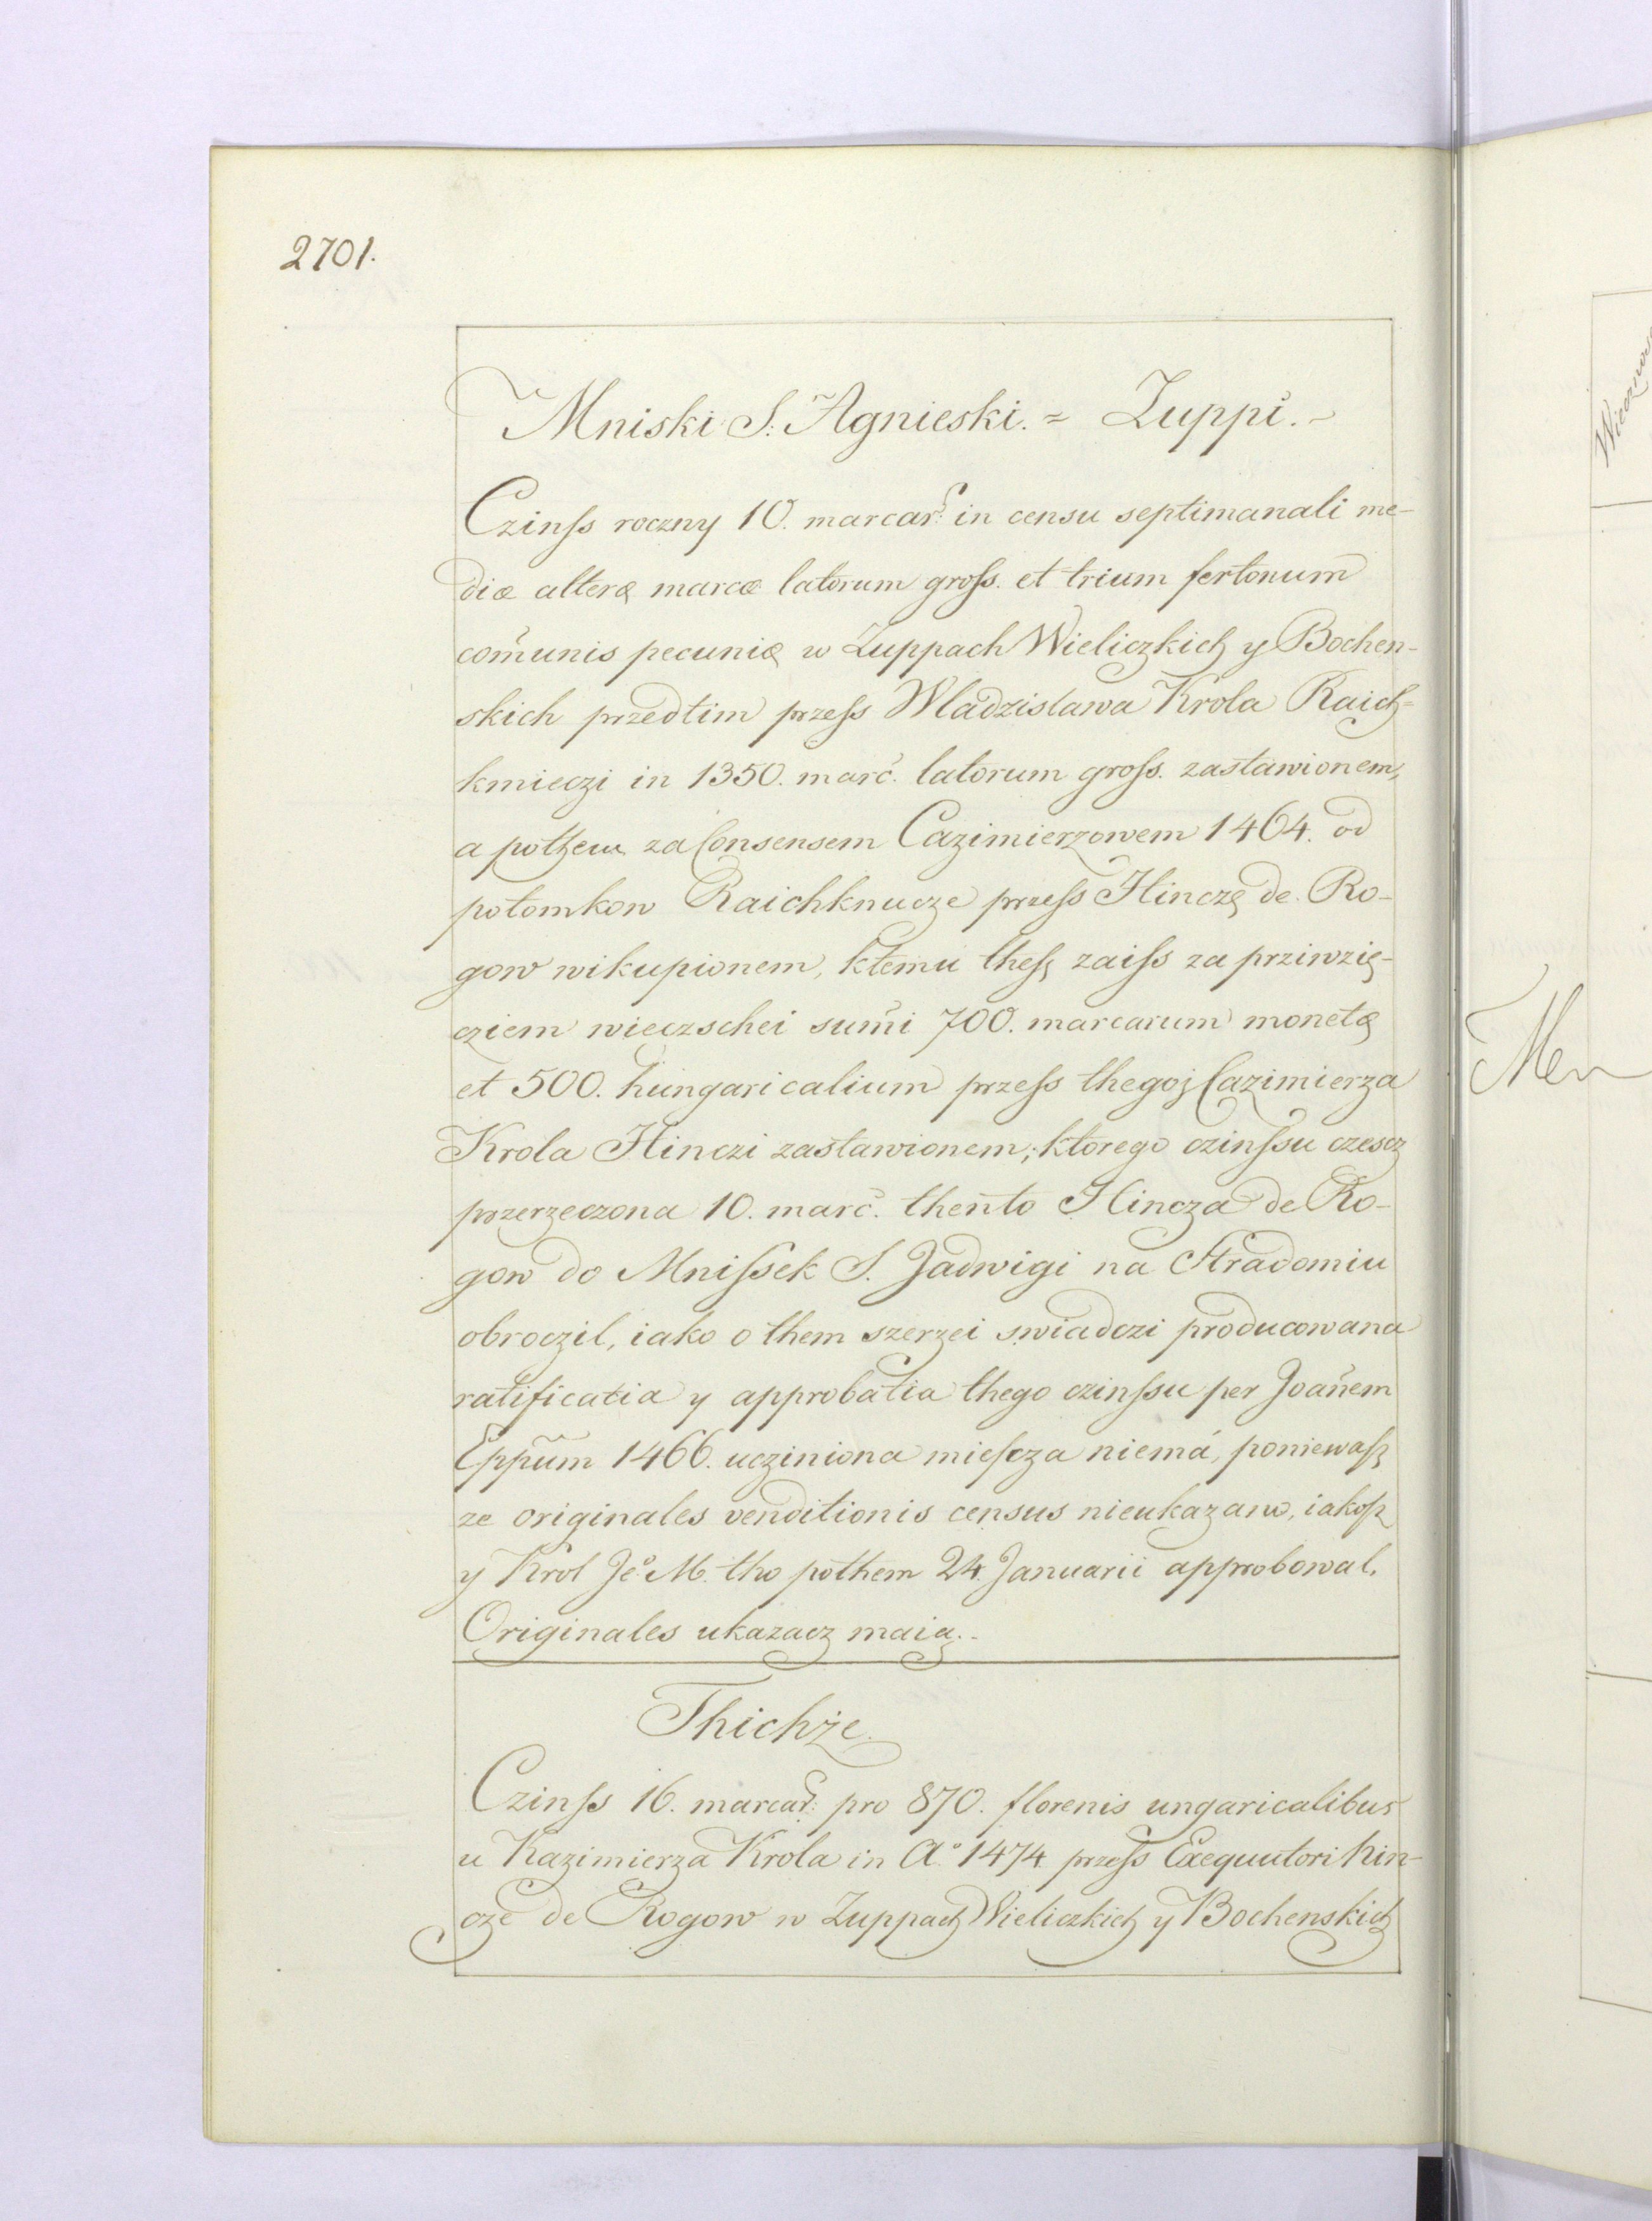 2701.
Mniski S. Agnieski. = Zuppi. ~
Czinss roczny 10. marcar: in censu septimanali me-
diæ alteræ marcæ latorum gross. et trium fertonum
com̃unis pecuniæ w Zuppach Wieliczkich y Bochen-
skich przedtim przess Wladzislawa Krola Raich=
kmieczi in 1350. marc̃. latorum gross. zastawionem,
a pothem za Consensem Cazimierzowem 1464. od
potomkow Raichknucze przess Hinczę de Ro-
gow wikupionem, ktemu thesz zaiss za prziwzię-
cziem wieczschei sum̃i 700. marcarum monetæ
et 500. hungaricalium przess thegoj Cazimierza
Krola Hinczi zastawionem; ktorego czinssu czescz
przerzeczona 10. marc̃. then̄to Hincza de Ro-
gow do Mnissek S. Jadwigi na Stradomiu
obroczil, iako o them szerzei swiadczi producowana
ratificatia y approbatia thego czinssu per Joan̄em
Epp̄um 1466. ucziniona miescza niemá, poniewasz
ze originales venditionis census nieukazano, iakosz
y Krol Je° M. tho pothem 24 Januarii approbowal.
Originales ukazacz maią.
Thichże.
Czinss 16. marcar: pro 870. florenis ungaricalibus
u Kazimierza Krola in A° 1474 przess Exequutori hin-
cze de Rogow w Zuppach Wieliczkich y Bochenskich
Men